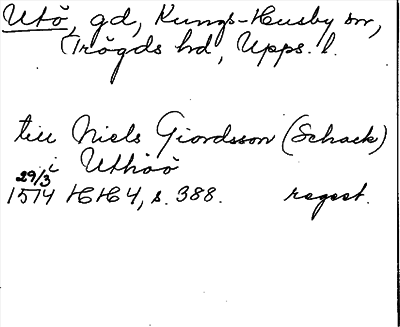 Utö, gd, Kungs-Husby sn,
Trögds hd, Upps. l.
till Niels Giordsson (Schack)
i Uthöö
29/3
1574 HH4, s. 388. regest.